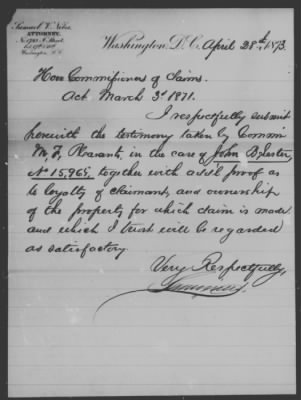 Samuel V. Niles,
ATTORNEY,
Washington, D.C.
Washington, D.C. April 28th, 1873.
Hon Commissioners of Claims.
Act March 3d 1871.
I respectfully submit
herewith the testimony taken by Commr
M. F. Pleasants, in the case of John B.
No 15,969, together with addl proof as
to loyalty of claimant, and ownership
of the property for which claim is made
and which I trust will be regarded
as satisfactory
Very Respectfully,